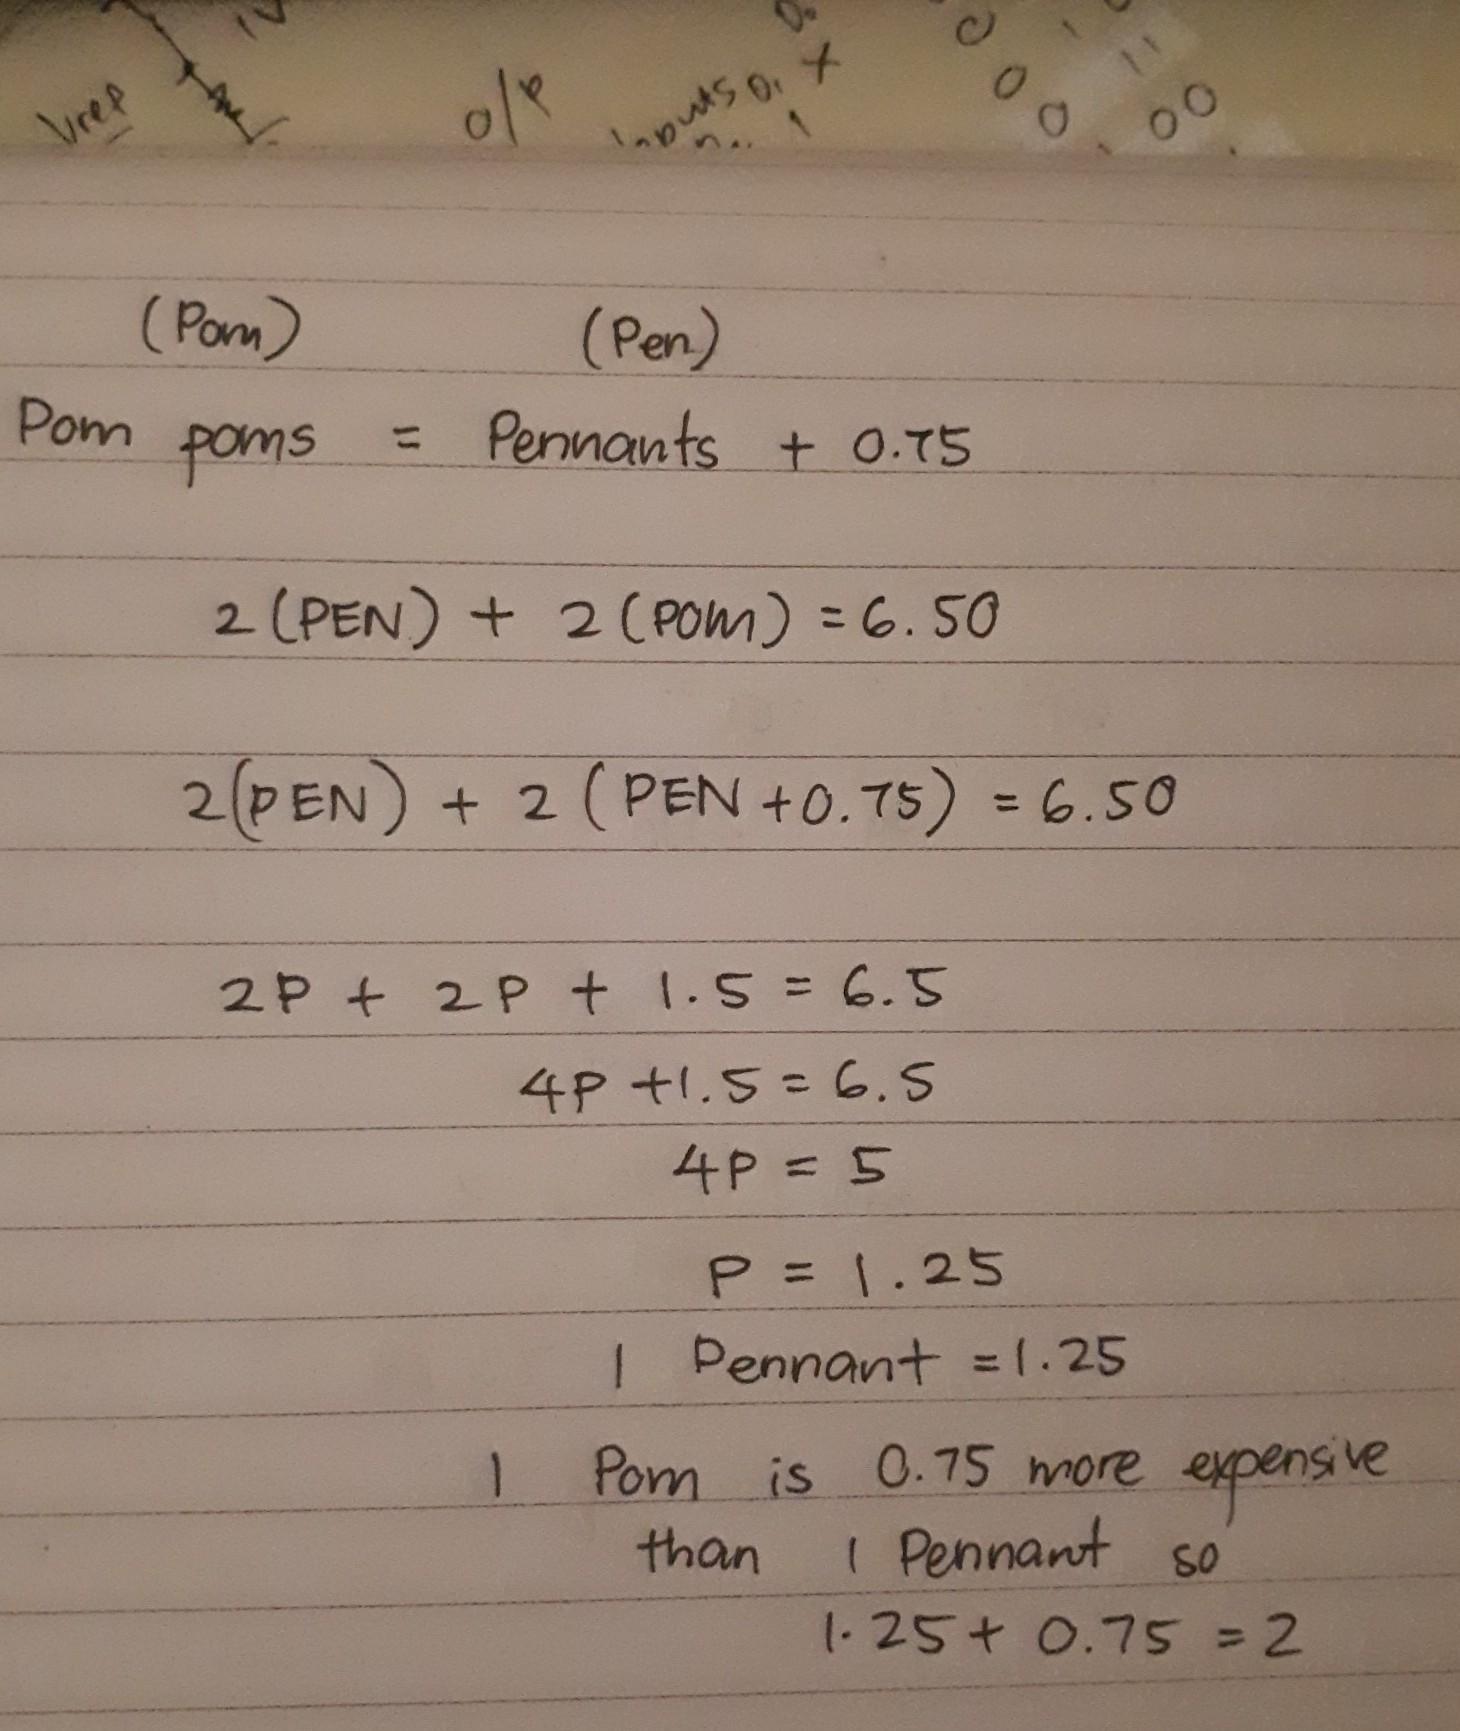 Vref
O/P
Inputs 0, 1
(Pom) (Pen)
Pom poms = Pennants + 0.75
2(PEN) + 2(POM) = 6.50
2(PEN) + 2(PEN+0.75) = 6.50
2P + 2P + 1.5 = 6.5
4P +1.5 = 6.5
4P = 5
P = 1.25
1 Pennant = 1.25
1 Pom is 0.75 more expensive
than 1 Pennant so
1.25 + 0.75 = 2